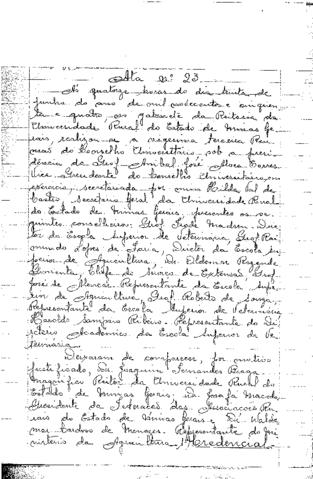 Ata nº 23.
Às quatorze horas do dia trinta de
junho do ano de mil novecentos e cinquen-
ta e quatro, no gabinete da Reitoria da
Universidade Rural do Estado de Minas Ge-
rais realizou-se a vigésima terceira Reu-
nião do Conselho Universitário, sob a presi-
dência do Prof.
Vice-Presidente do Conselho Universitário, em
exercício, secretariada por mim Hilda
Castro Secretário Geral da Universidade Rural
do Estado de Minas Gerais, presentes os se-
guintes conselheiros: Prof. Dire-
tor da Escola Superior de Veterinária, Prof. Rai-
mundo Lopes de Faria, Diretor da Escola Su-
perior de Agricultura, Dr. Eldemar Rezende
Pimenta, Chefe do Serviço de Extensão, Prof.
José de Alencar, Representante da Escola Supe-
rior de Agricultura, Prof. Roberto de Souza,
Representante da Escola Superior de Veterinária
Ribeiro. Representante do Di-
retório Acadêmico da Escola Superior de Ve-
terinária.
Deixaram de comparecer, por motivo
justificado, Dr. Joaquim Fernandes Braga -
Magnífico Reitor da Universidade Rural do
Estado de Minas Gerais, Dr. Josafá Macedo,
Presidente da Federação das Associações Ru-
rais do Estado de Minas Gerais e Dr. Walde-
mar Cardoso de Menezes. Representante do Mi-
nistério da Agricultura. Credencial